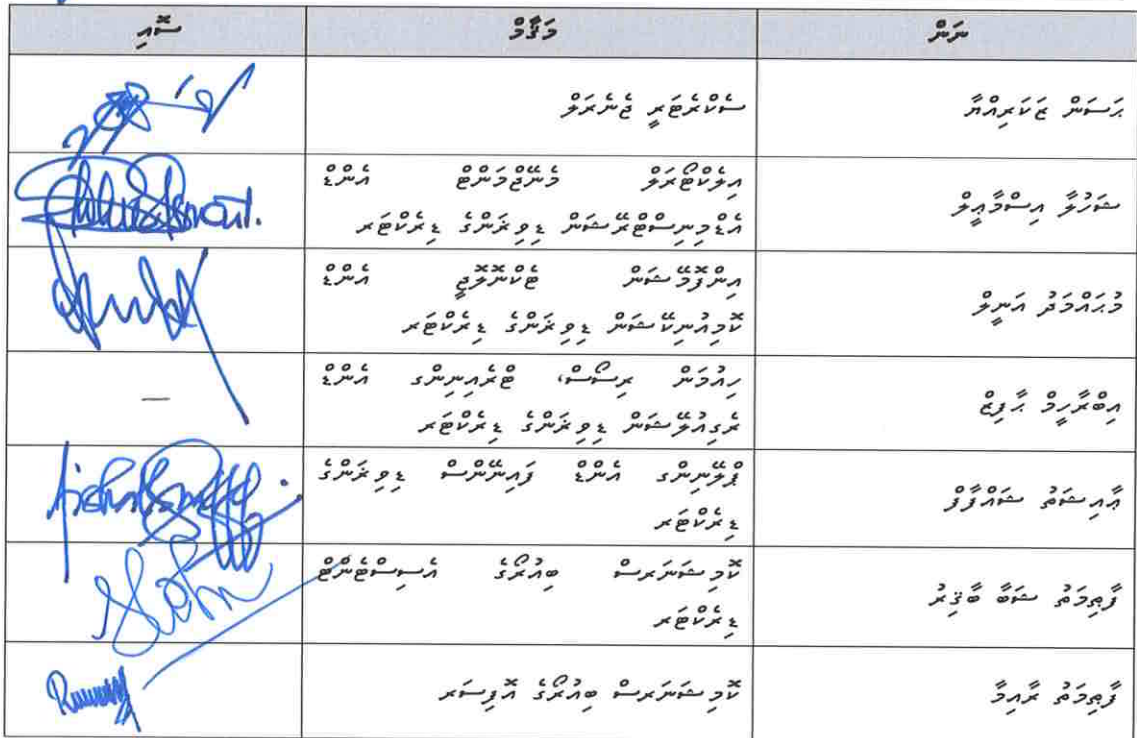 ނަން މަޤާމް ސޮއި
ޙަސަން ޒަކަރިއްޔާ ސެކްރެޓަރީ ޖެނެރަލް
ޝަހުލާ އިސްމާޢީލް އިލެކްޓޯރަލް މެނޭޖްމަންޓް އެންޑް
އެޑްމިނިސްޓްރޭޝަން ޑިވިޜަންގެ ޑިރެކްޓަރ
މުޙައްމަދު އަނީލް އިންފޮމޭޝަން ޓެކްނޮލޮޖީ އެންޑް
ކޮމިއުނިކޭޝަން ޑިވިޜަންގެ ޑިރެކްޓަރ
އިބްރާހީމް ޙާފިޒް ހިއުމަން ރިސޯސް، ޓްރެއިނިންގ އެންޑް
ރެގިއުލޭޝަން ޑިވިޜަންގެ ޑިރެކްޓަރ —
ޢާއިޝަތު ޝައްފާފް ޕްލޭނިންގ އެންޑް ފައިނޭންސް ޑިވިޜަންގެ
ޑިރެކްޓަރ
ފާޠިމަތު ޝަބާ ބާޤިރު ކޮމިޝަނަރސް ބިއުރޯގެ އެސިސްޓެންޓް
ޑިރެކްޓަރ
ފާޠިމަތު ރާއިމާ ކޮމިޝަނަރސް ބިއުރޯގެ އޮފިސަރ